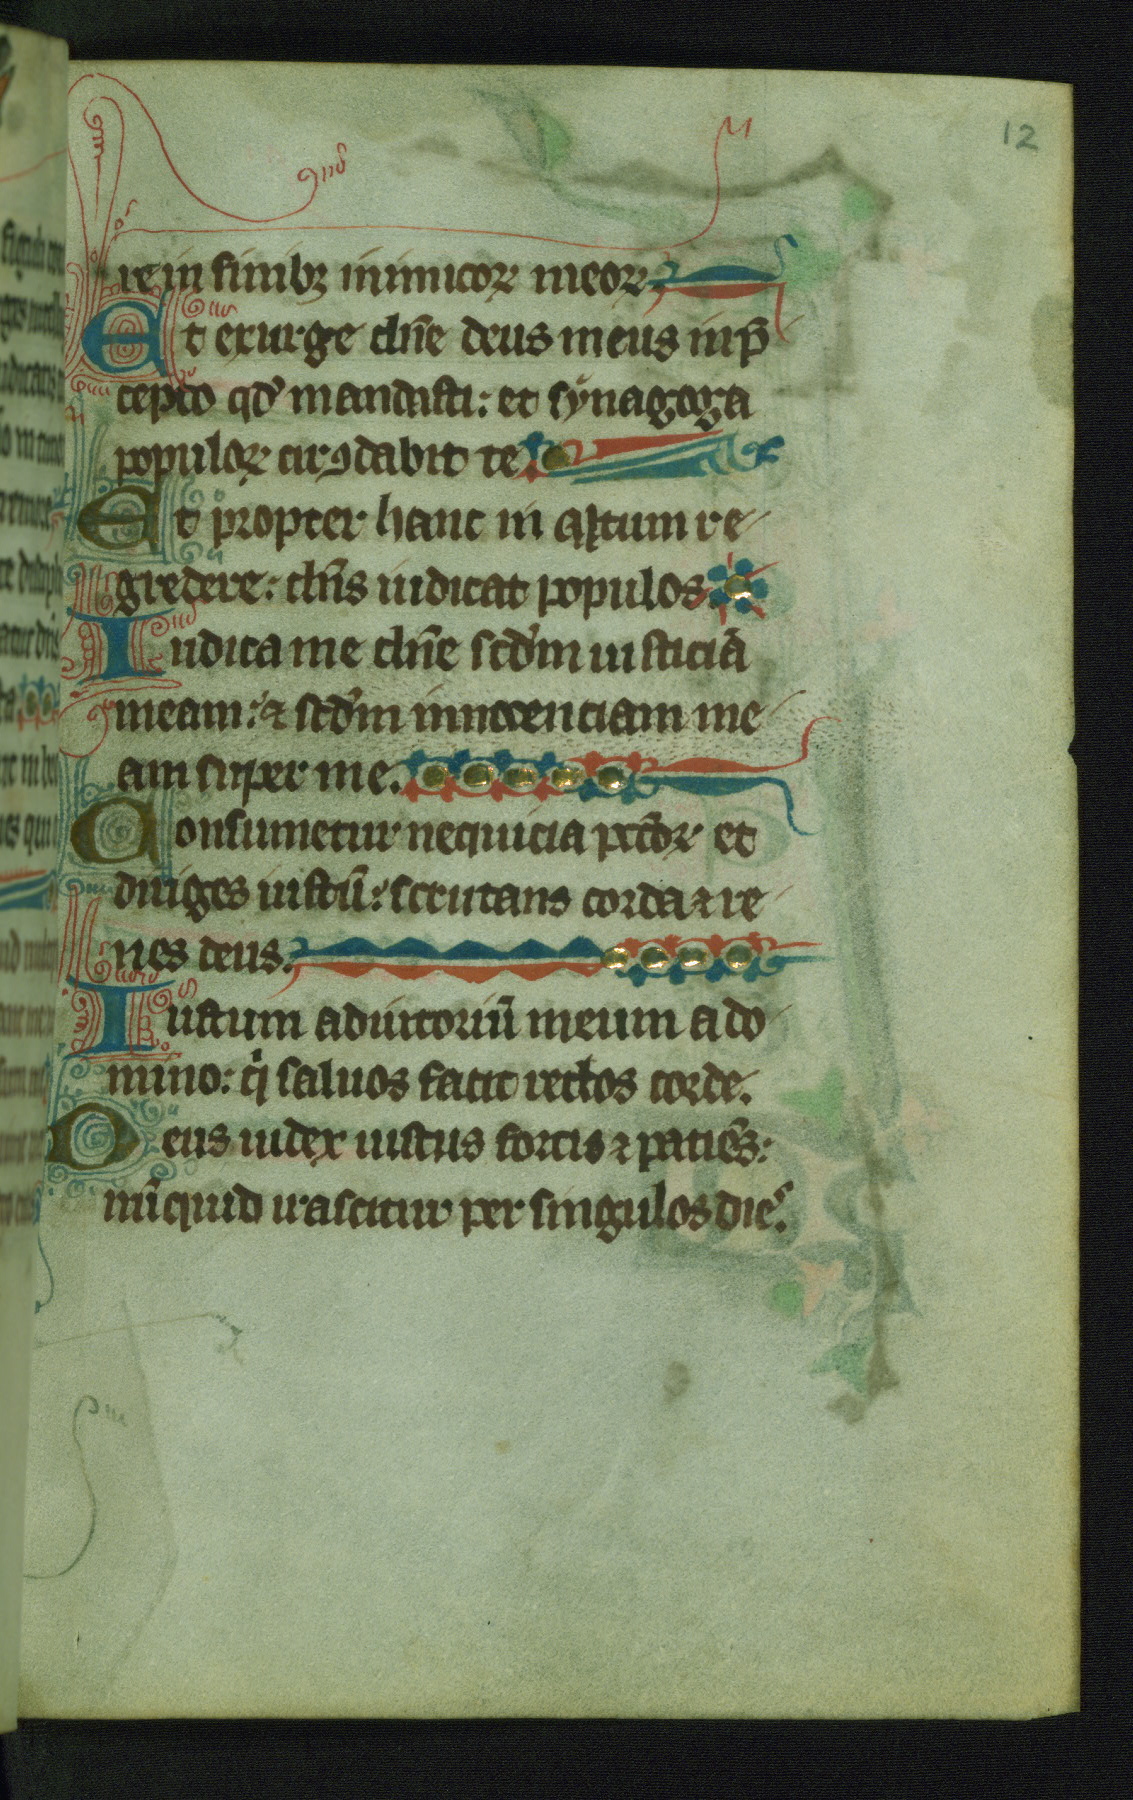 12
re in finibꝫ inimicoꝝ meoꝝ
Et exurge dn̄e deus meus in p̄
cepto qd̓ mandasti: et synagoga
populoꝝ circūdabit te
Et propter hanc in altum re
gredere: dn̄s iudicat populos.
Iudica me dn̄e scd̓m iusticiā
meam: ⁊ scd̓m innocenciam me
am super me.
Consumetur nequicia pctōꝝ et
diriges iustū: scrutans corda ⁊ re
nes deus.
Iustum adiutoriū meum a do
mino: qͥ saluos facit rectos corde.
Deus iudex iustus fortis ⁊ patiēs:
nūquid irascitur per singulos dies.